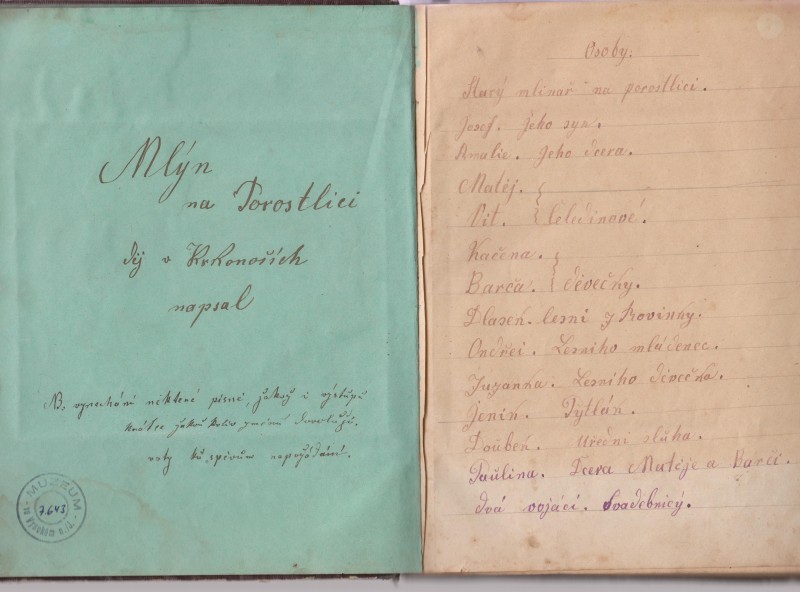 Mlýn
na Porostlici
děj v Krkonoších
napsal
vynechání některé písně, jakož i výstupu
krátce
noty ku zpěvům
MUZEUM
7643
Osoby:
Starý mlinař na porostlici.
Josef. Jeho syn.
Amalie. Jeho dcera.
Matěj.
Vit. } čeledínové.
Kačena.
Barča. } děvečky.
lesní z Rovinky.
Ondřei. Lesního mládenec.
Zuzanka. Lesního děvečka.
Jenín. Pytlák.
Doubek. Uřední sluha.
Paulina. Dcera Matěje a Barči.
dvá vojáci. Svadebnicý.